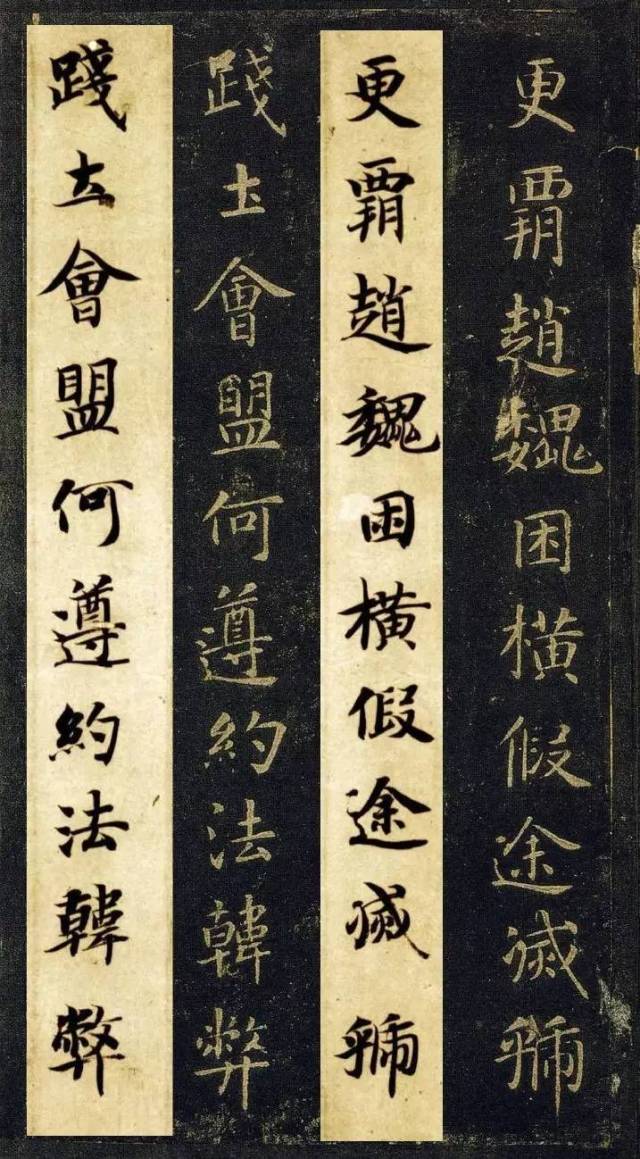 更覇趙魏困橫假途滅虢
更覇趙魏困橫假途滅虢
踐土會盟何遵約法韓弊
踐土會盟何遵約法韓弊